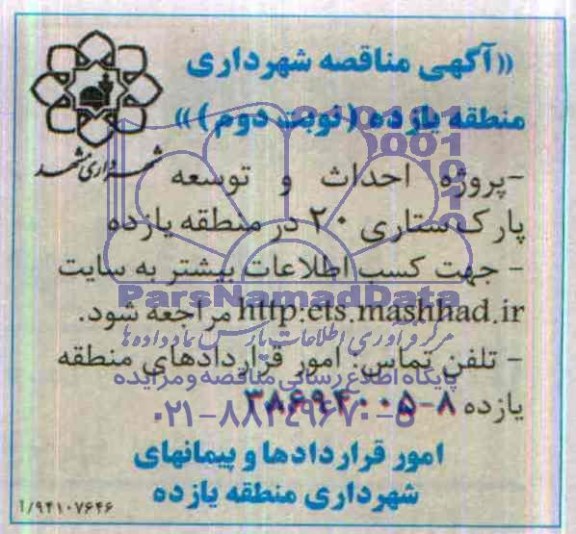 «آگهی مناقصه شهرداری
منطقه یازده (نوبت دوم)»
شهرداری مشهد
-پروژه احداث و توسعه
پارک ستاری ۲۰ در منطقه یازده
- جهت کسب اطلاعات بیشتر به سایت
ParsNamadData
http:ets.mashhad.ir مراجعه شود.
مرکز فرآوری اطلاعات پارس نماد داده ها
- تلفن تماس: امور قراردادهای منطقه
پایگاه اطلاع رسانی مناقصه و مزایده
یازده ۸-۳۸۶۹۴۰۰۵
۰۲۱-۸۸۳۴۹۶۷۰-۵
امور قراردادها و پیمانهای
شهرداری منطقه یازده
۱/۹۴۱۰۷۶۴۶